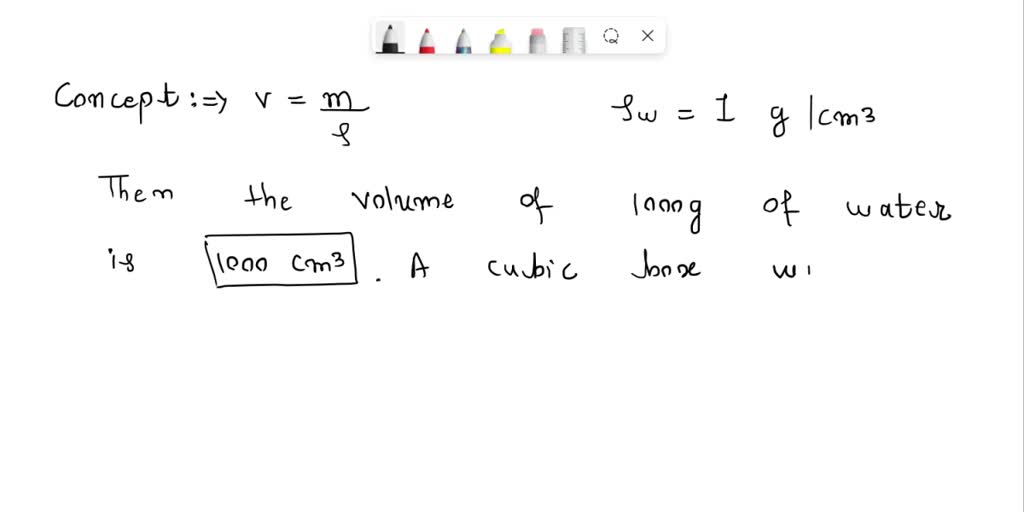 Concept :⇒ v = m/ρ
ρw = 1 g/cm3
Then the volume of 1000g of water
is 1000 cm3. A cubic boxe wi